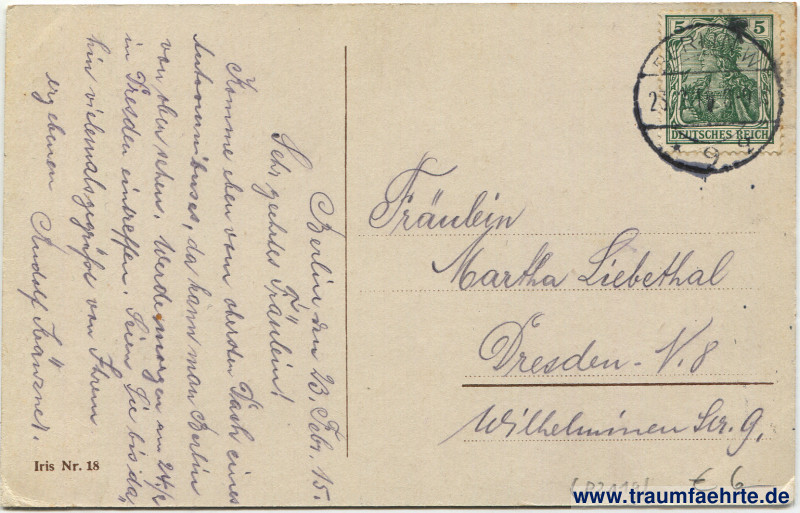 Berlin den 23. Febr. 15.
Sehr geehrtes Fräulein!
Komme eben vom obersten Dach eines
Autoomnibuses, da kann man Berlin
von oben sehen. Werde morgen am 24./2
in Dresden eintreffen. Seien Sie bis da,
hin vielemals gegrüßt von Ihrem
ergebenen Rudolf
Iris Nr. 18
5 5
DEUTSCHES REICH
Fräulein
Martha Liebethal
Dresden-N. 8
Wilhelminen Str. 9.
€ 6-
www.traumfaehrte.de